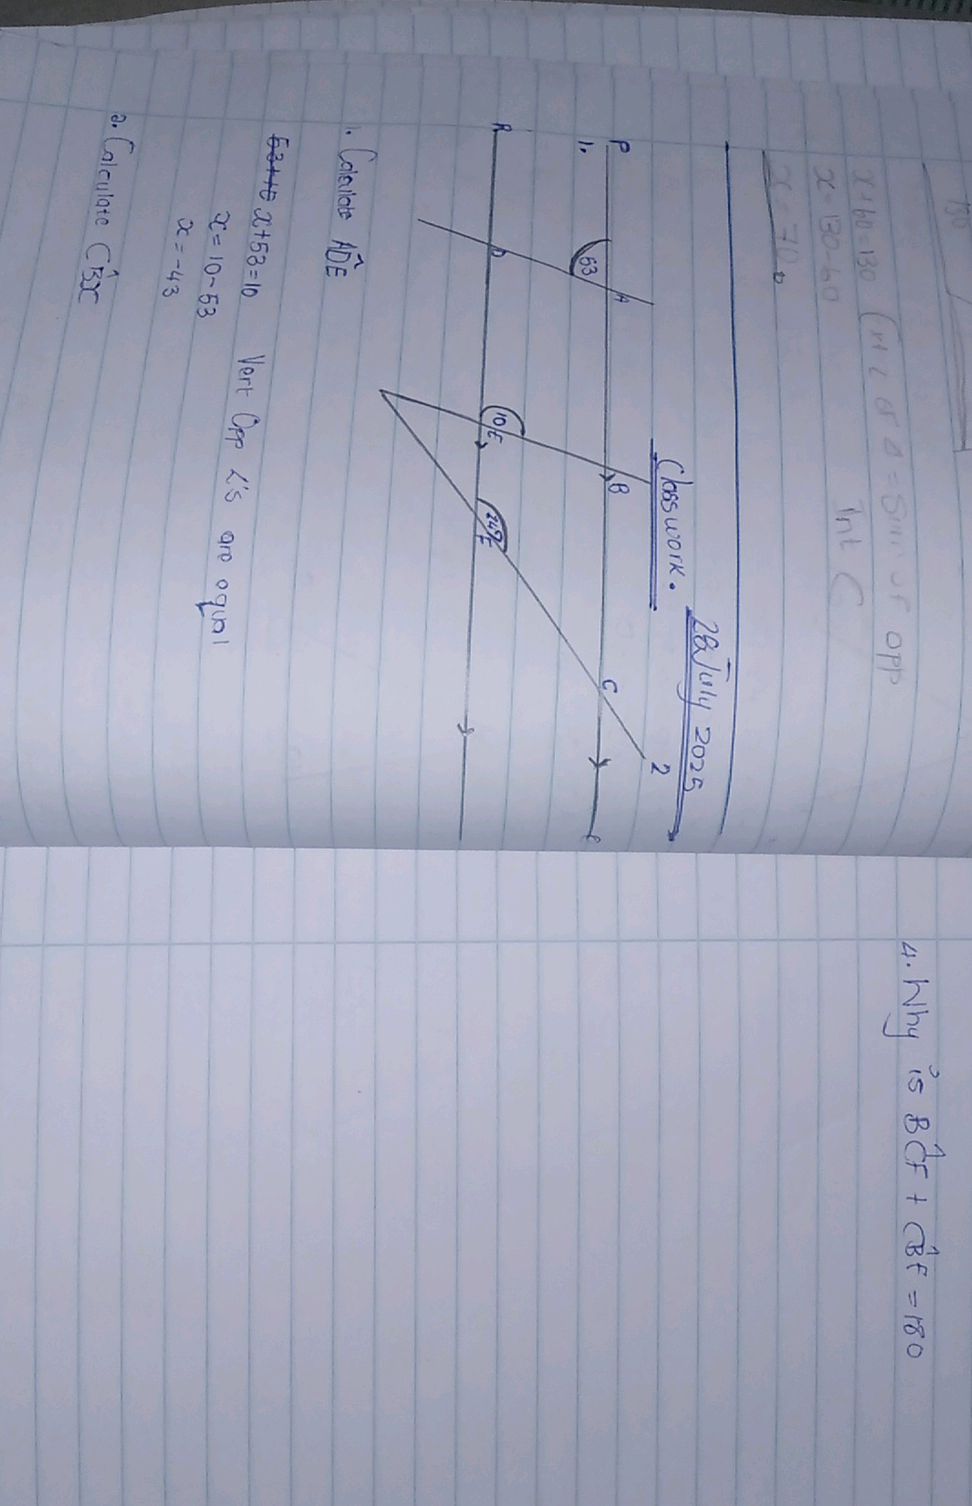 130
x+60=130 (ext ∠ of Δ = Sum of opp
x = 130-60 Int
x = 70
28 July 2025
Classwork.
1.
P A B C 2
63
R D E F
10
24°
1. Calculate AD̂E
53+10 x+53=10 Vert Opp ∠'s are equal
x = 10-53
x = -43
2. Calculate CB̂X
4. Why is BĈF + CB̂F = 180